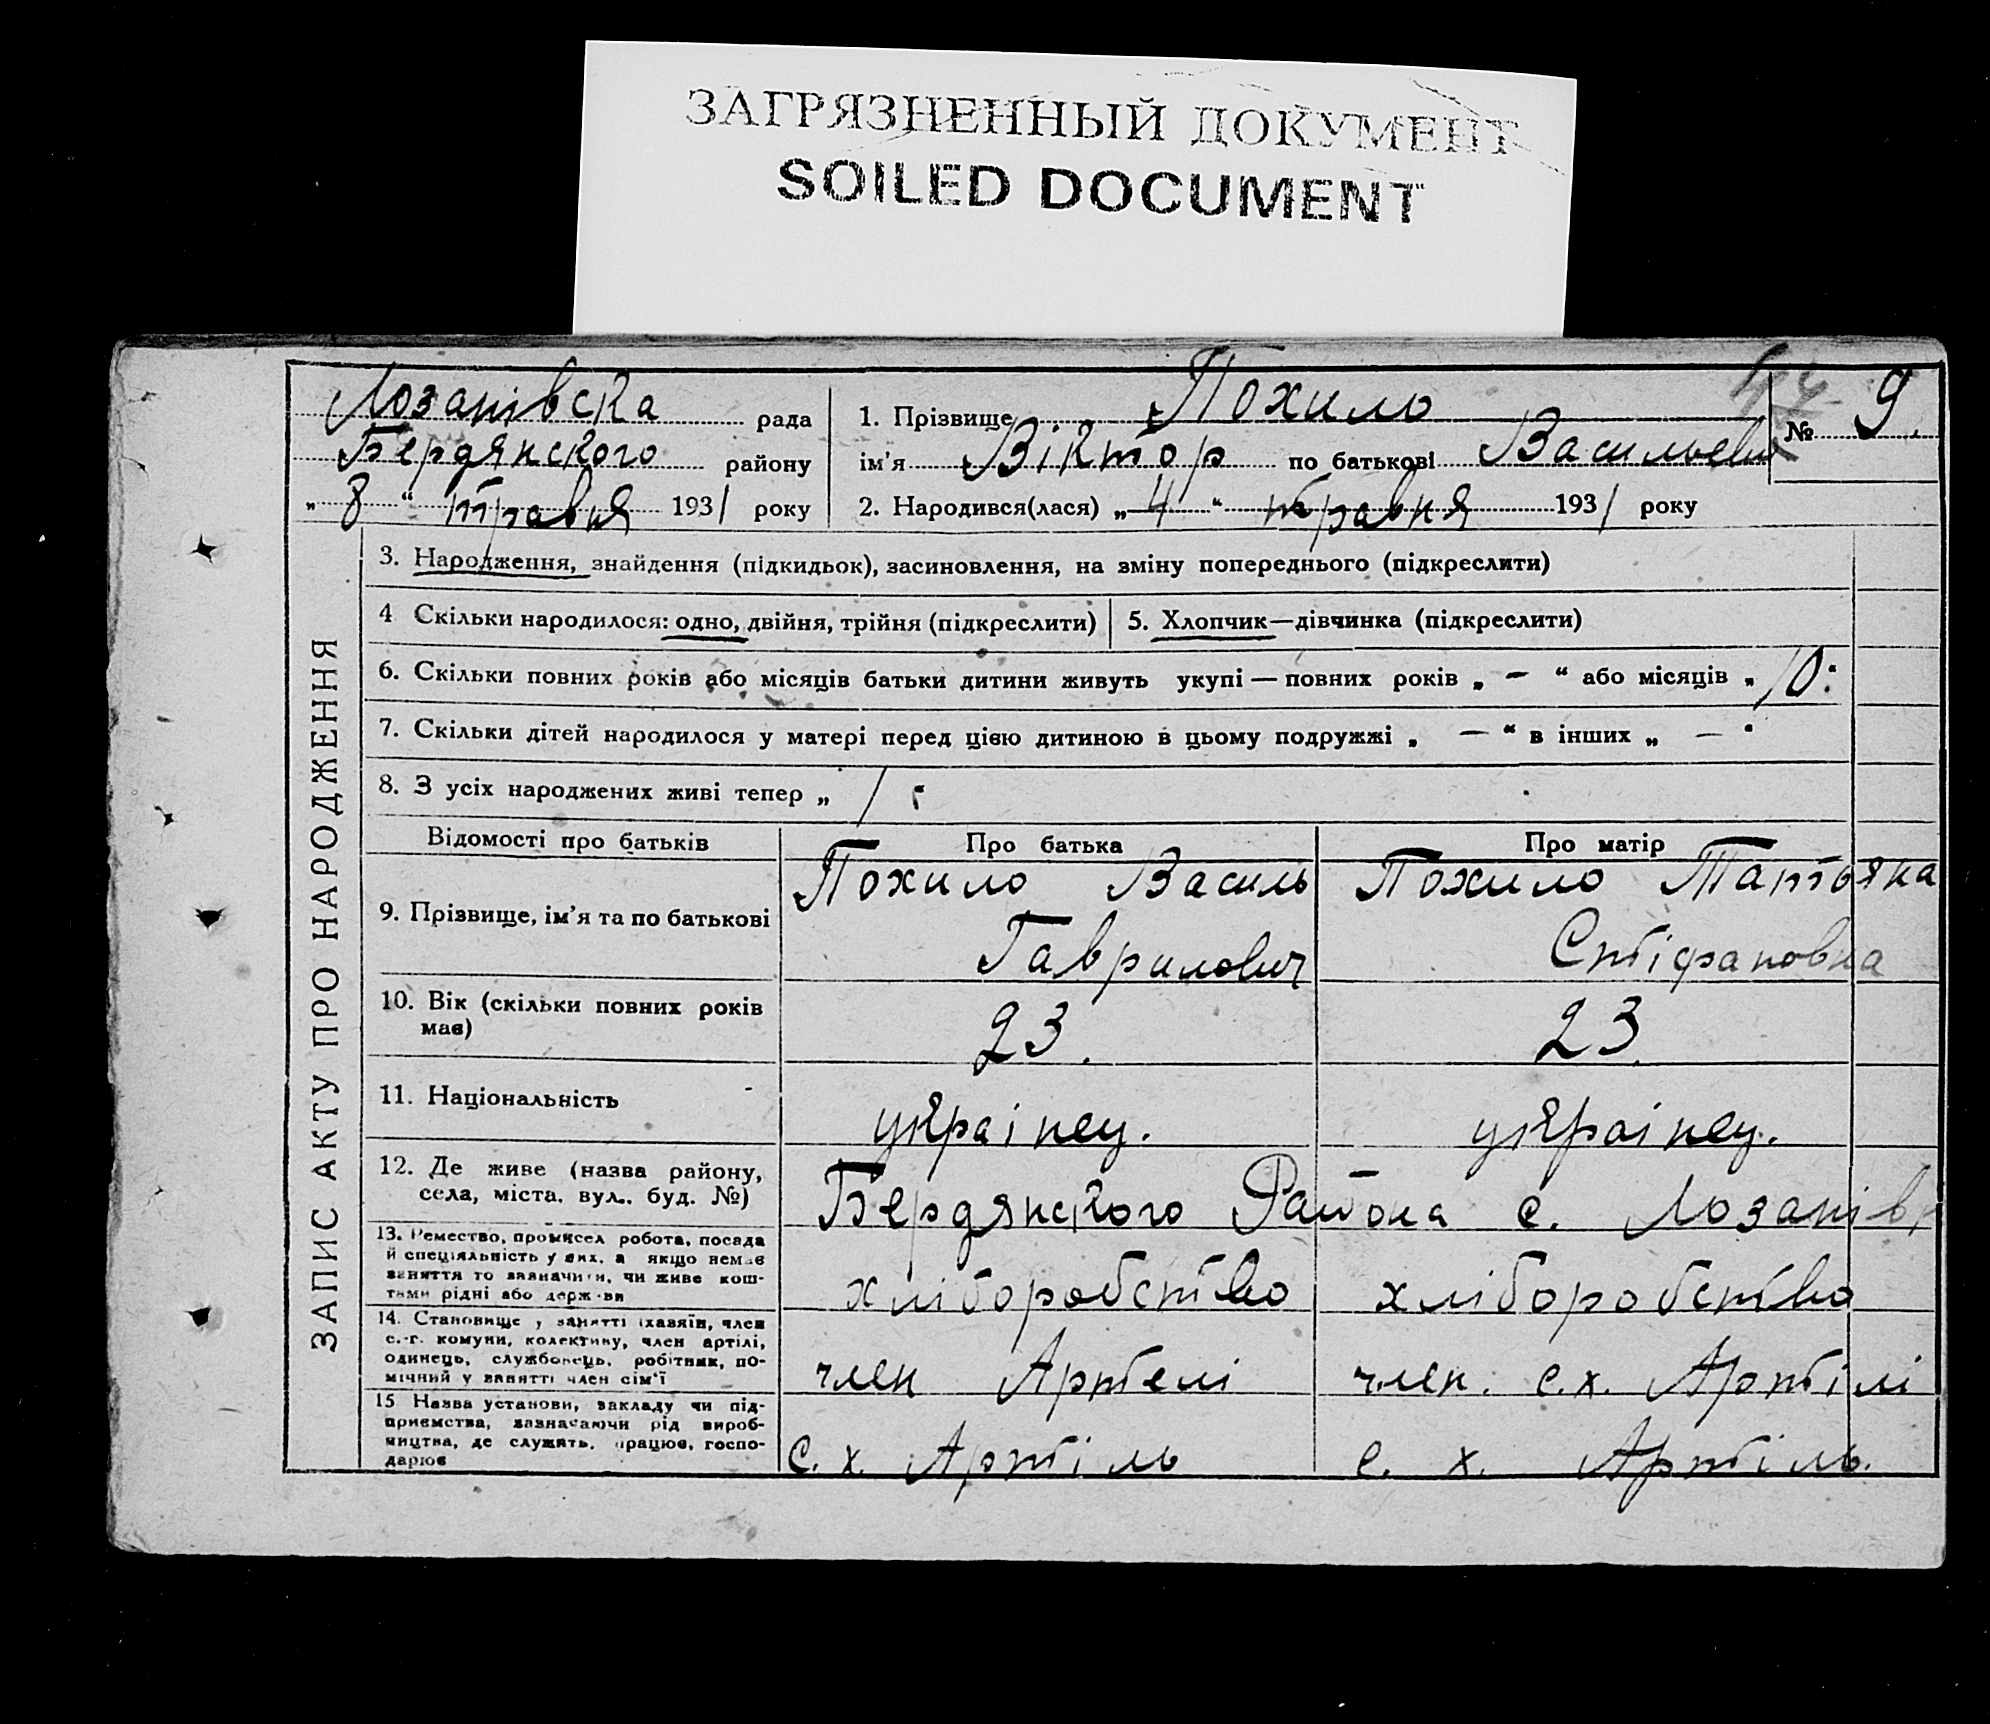 ЗАГРЯЗНЕННЫЙ ДОКУМЕНТ
SOILED DOCUMENT
Лозанівска рада
Бердянского району
„ 8 “ травня 1931 року
1. Прізвище Похило
ім'я Віктор по батькові Васильевич
2. Народився(лася) „ 4 “ травня 1931 року
№ 9.
ЗАПИС АКТУ ПРО НАРОДЖЕННЯ
3. Народження, знайдення (підкидьок), засиновлення, на зміну попереднього (підкреслити)
4 Скільки народилося: одно, двійня, трійня (підкреслити)
5. Хлопчик—дівчинка (підкреслити)
6. Скільки повних років або місяців батьки дитини живуть укупі — повних років „ — “ або місяців „ 10:
7. Скільки дітей народилося у матері перед цією дитиною в цьому подружжі „ — “ в інших „ — “
8. З усіх народжених живі тепер „ 1
Відомості про батьків Про батька Про матір
9. Прізвище, ім'я та по батькові
Похило Василь
Гаврилович
Похило Татьяна
Стіфановна
10. Вік (скільки повних років
має)
23.
23.
11. Національність
українец.
українец.
12. Де живе (назва району,
села, міста, вул.. буд. №)
Бердянского Района с. Лозанів
13. Ремество, промисел робота, посада
й спеціяльність у них, а якщо немає
заняття то зазначити, чи живе кош-
тами рідні або держави
хліборобство
хліборобство
14. Становище у занятті (хазяїн, член
с.-г. комуни, колективу, член артілі,
одинець, службовець, робітник, по-
мічний у занятті член сім'ї
член Артелі
член. с.х. Артілі
15 Назва установи, закладу чи під-
приємства, зазначаючи рід вироб-
ництва, де служить, працює, госпо-
дарює
С. х. Артіль
с. х. Артіль.